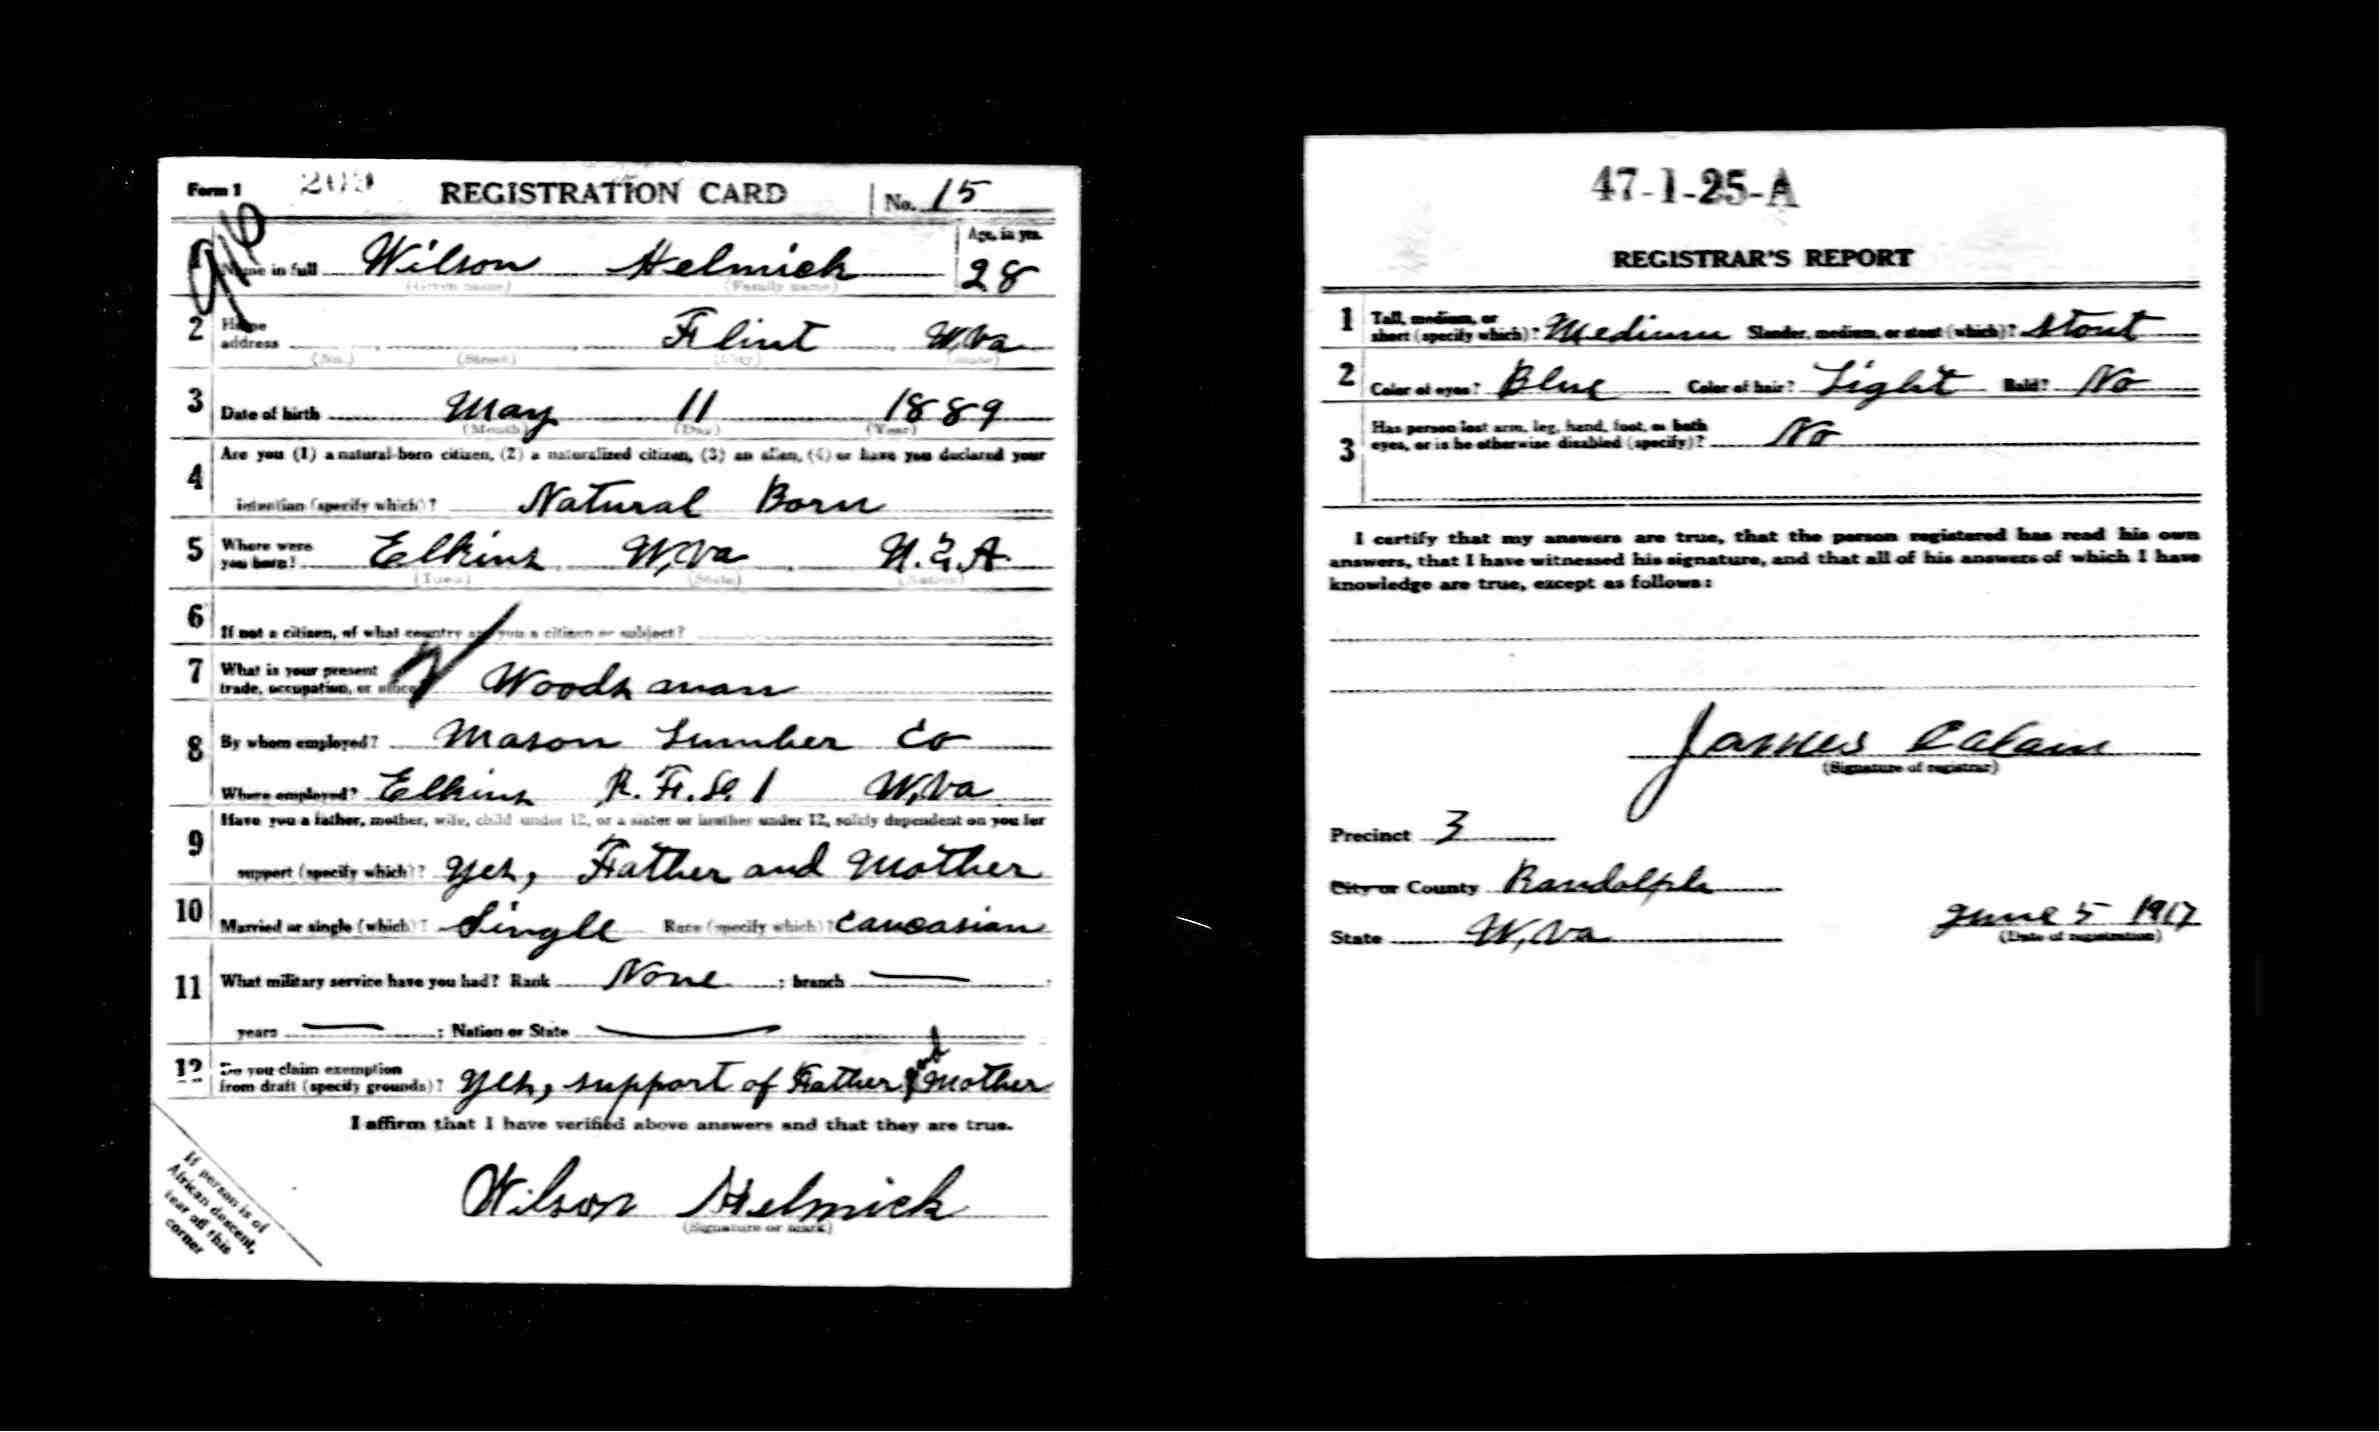 Form 1 203 REGISTRATION CARD No. 15
916
1 Name in full Wilson Helmick Age, in yrs. 28
(Given name) (Family name)
2 Home address Flint W,Va
(No.) (Street) (City) (State)
3 Date of birth May 11 1889
(Month) (Day) (Year)
4 Are you (1) a natural-born citizen, (2) a naturalized citizen, (3) an alien, (4) or have you declared your
intention (specify which)? Natural Born
5 Where were you born? Elkins W,Va U.S.A.
(Town) (State) (Nation)
6 If not a citizen, of what country are you a citizen or subject?
7 What is your present trade, occupation, or office? Woodsman
8 By whom employed? Mason Lumber Co
Where employed? Elkins R.F.D. 1 W,Va
9 Have you a father, mother, wife, child under 12, or a sister or brother under 12, solely dependent on you for
support (specify which)? Yes, Father and Mother
10 Married or single (which)? Single Race (specify which)? Caucasian
11 What military service have you had? Rank None ; branch
years ; Nation or State
12 Do you claim exemption from draft (specify grounds)? Yes, support of Father and Mother
I affirm that I have verified above answers and that they are true.
Wilson Helmick
(Signature or mark)
If person is of
African descent,
tear off this
corner
47-1-25-A
REGISTRAR'S REPORT
1 Tall, medium, or short (specify which)? Medium Slender, medium, or stout (which)? Stout
2 Color of eyes? Blue Color of hair? Light Bald? No
3 Has person lost arm, leg, hand, foot, or both
eyes, or is he otherwise disabled (specify)? No
I certify that my answers are true, that the person registered has read his own
answers, that I have witnessed his signature, and that all of his answers of which I have
knowledge are true, except as follows:
James
(Signature of registrar)
Precinct 3
City or County Randolph
State W,Va June 5 1917
(Date of registration)